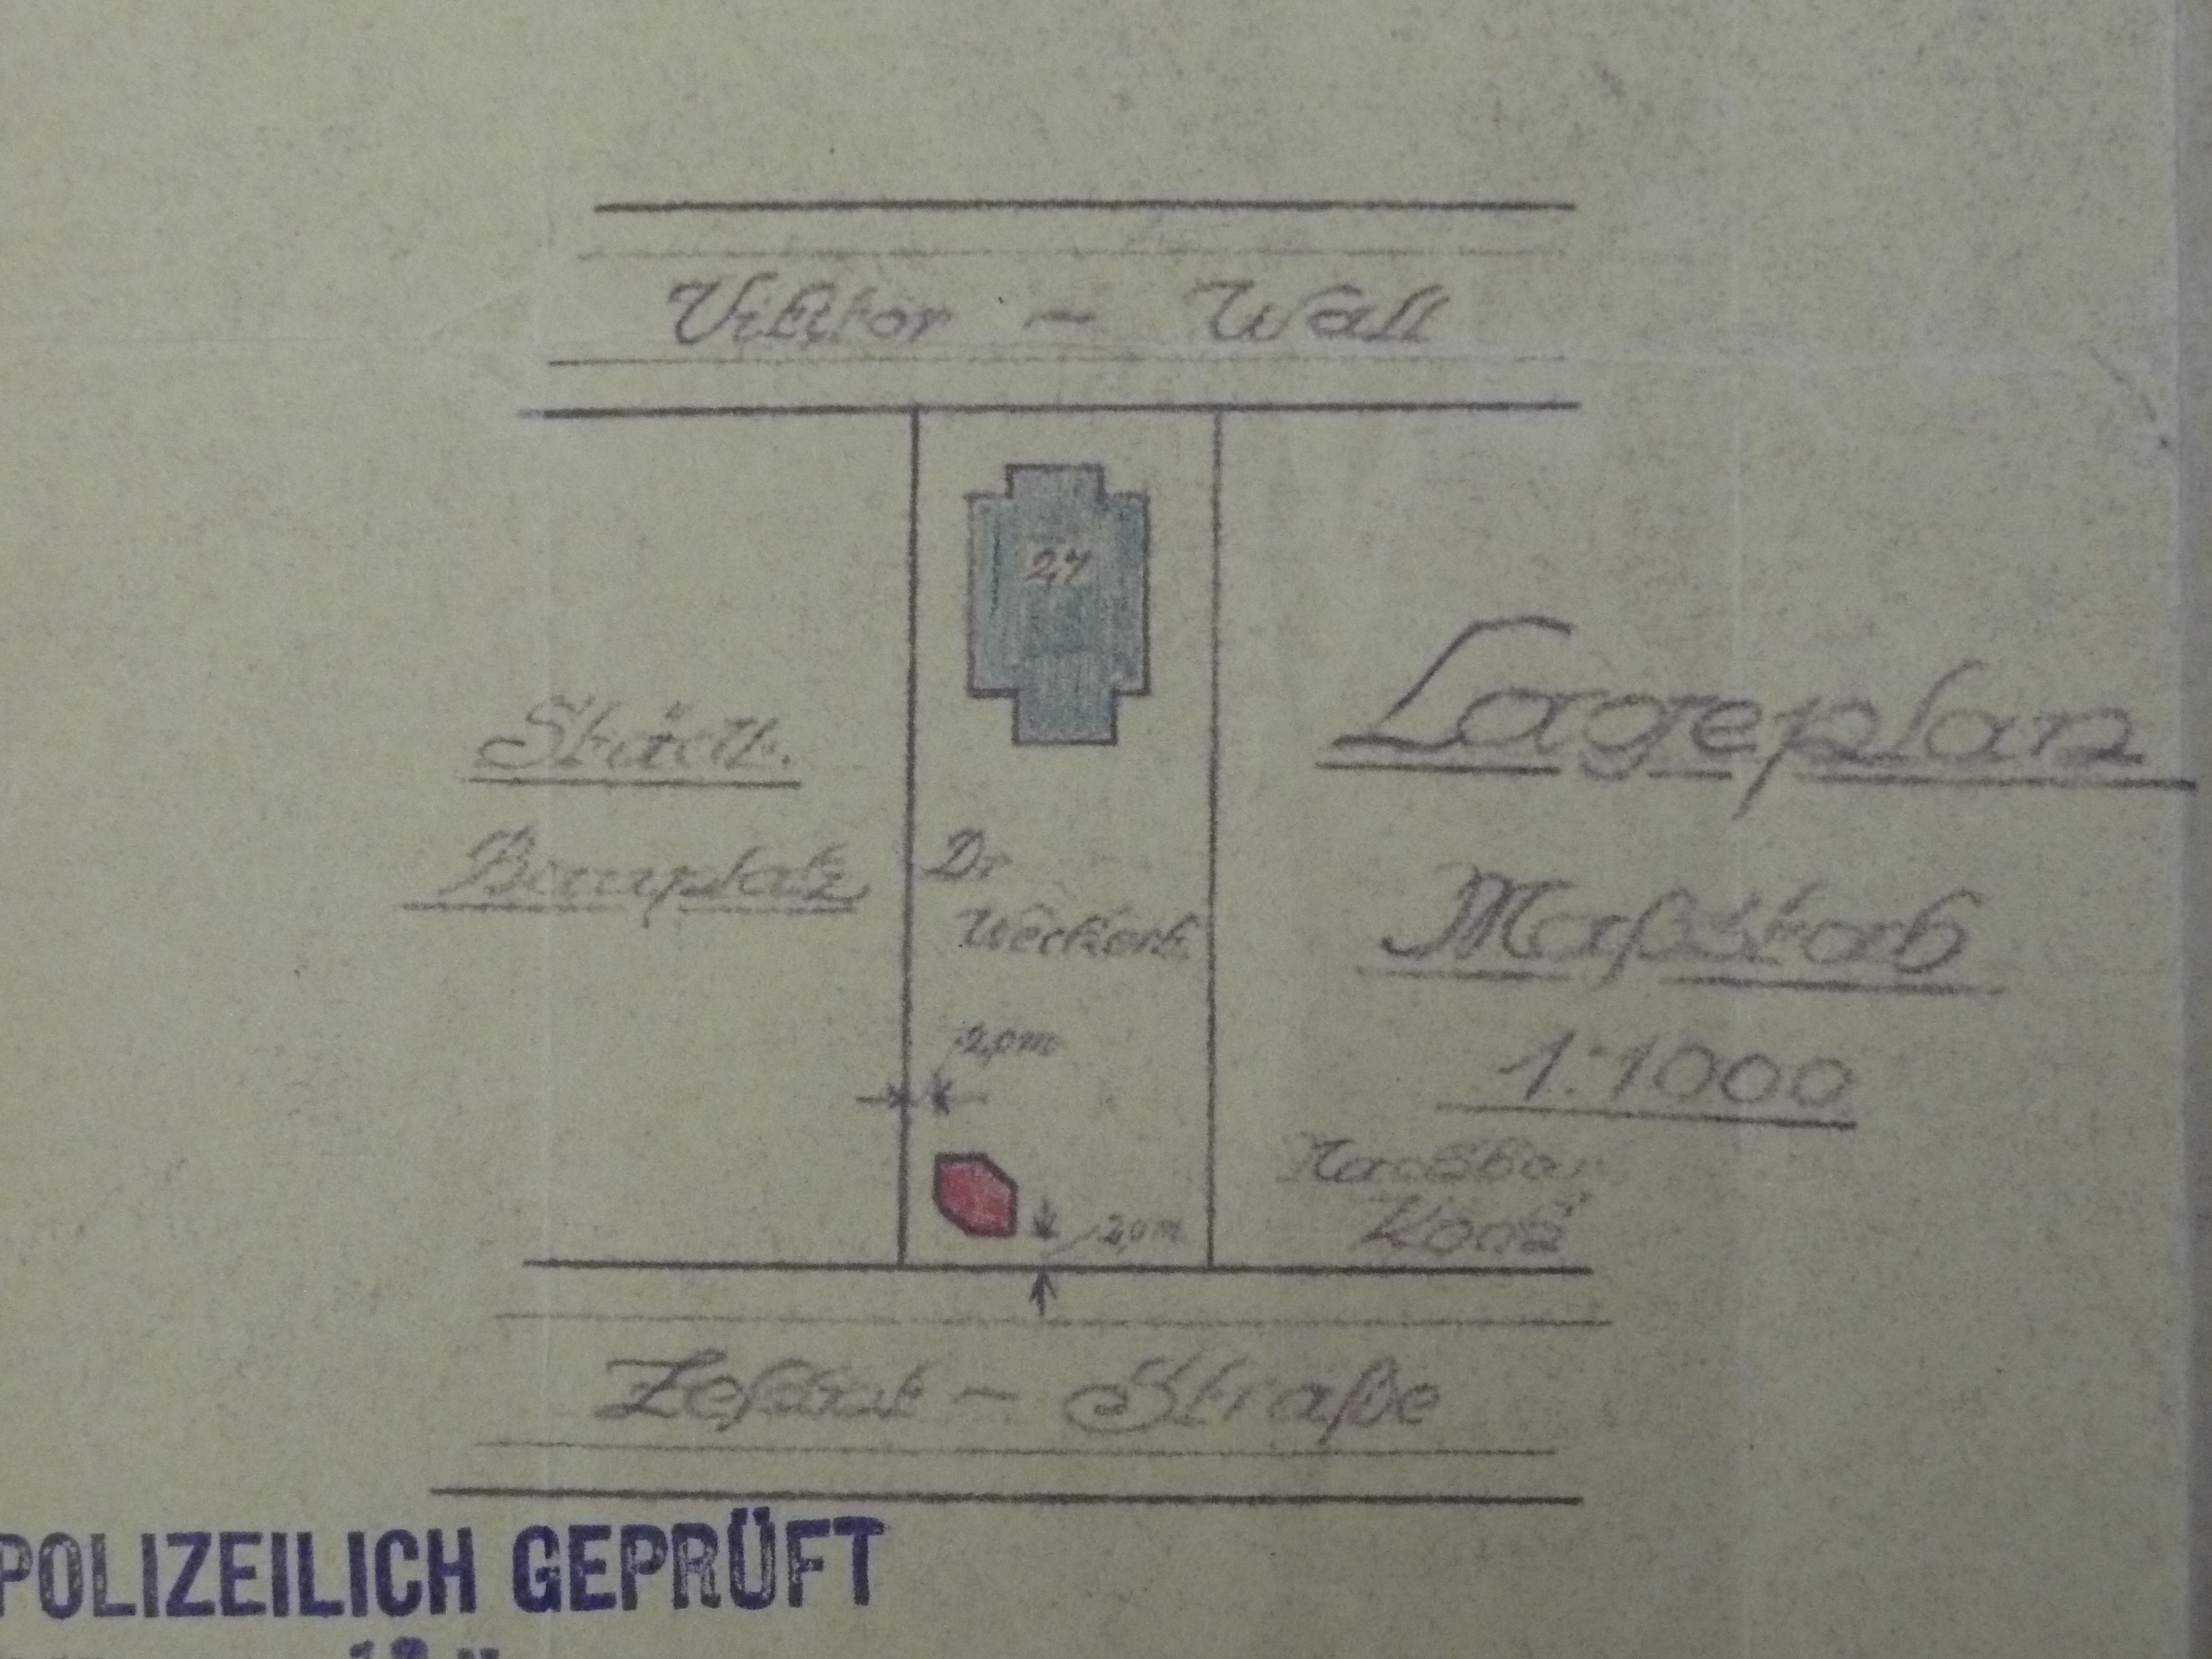 Viktor - Wall
24
Städt.
Bauplatz
Lageplan
Maßstab
1:1000
Dr
Weckert
2,0m
Nachbar
Koch
2,0m
Straße
POLIZEILICH GEPRÜFT